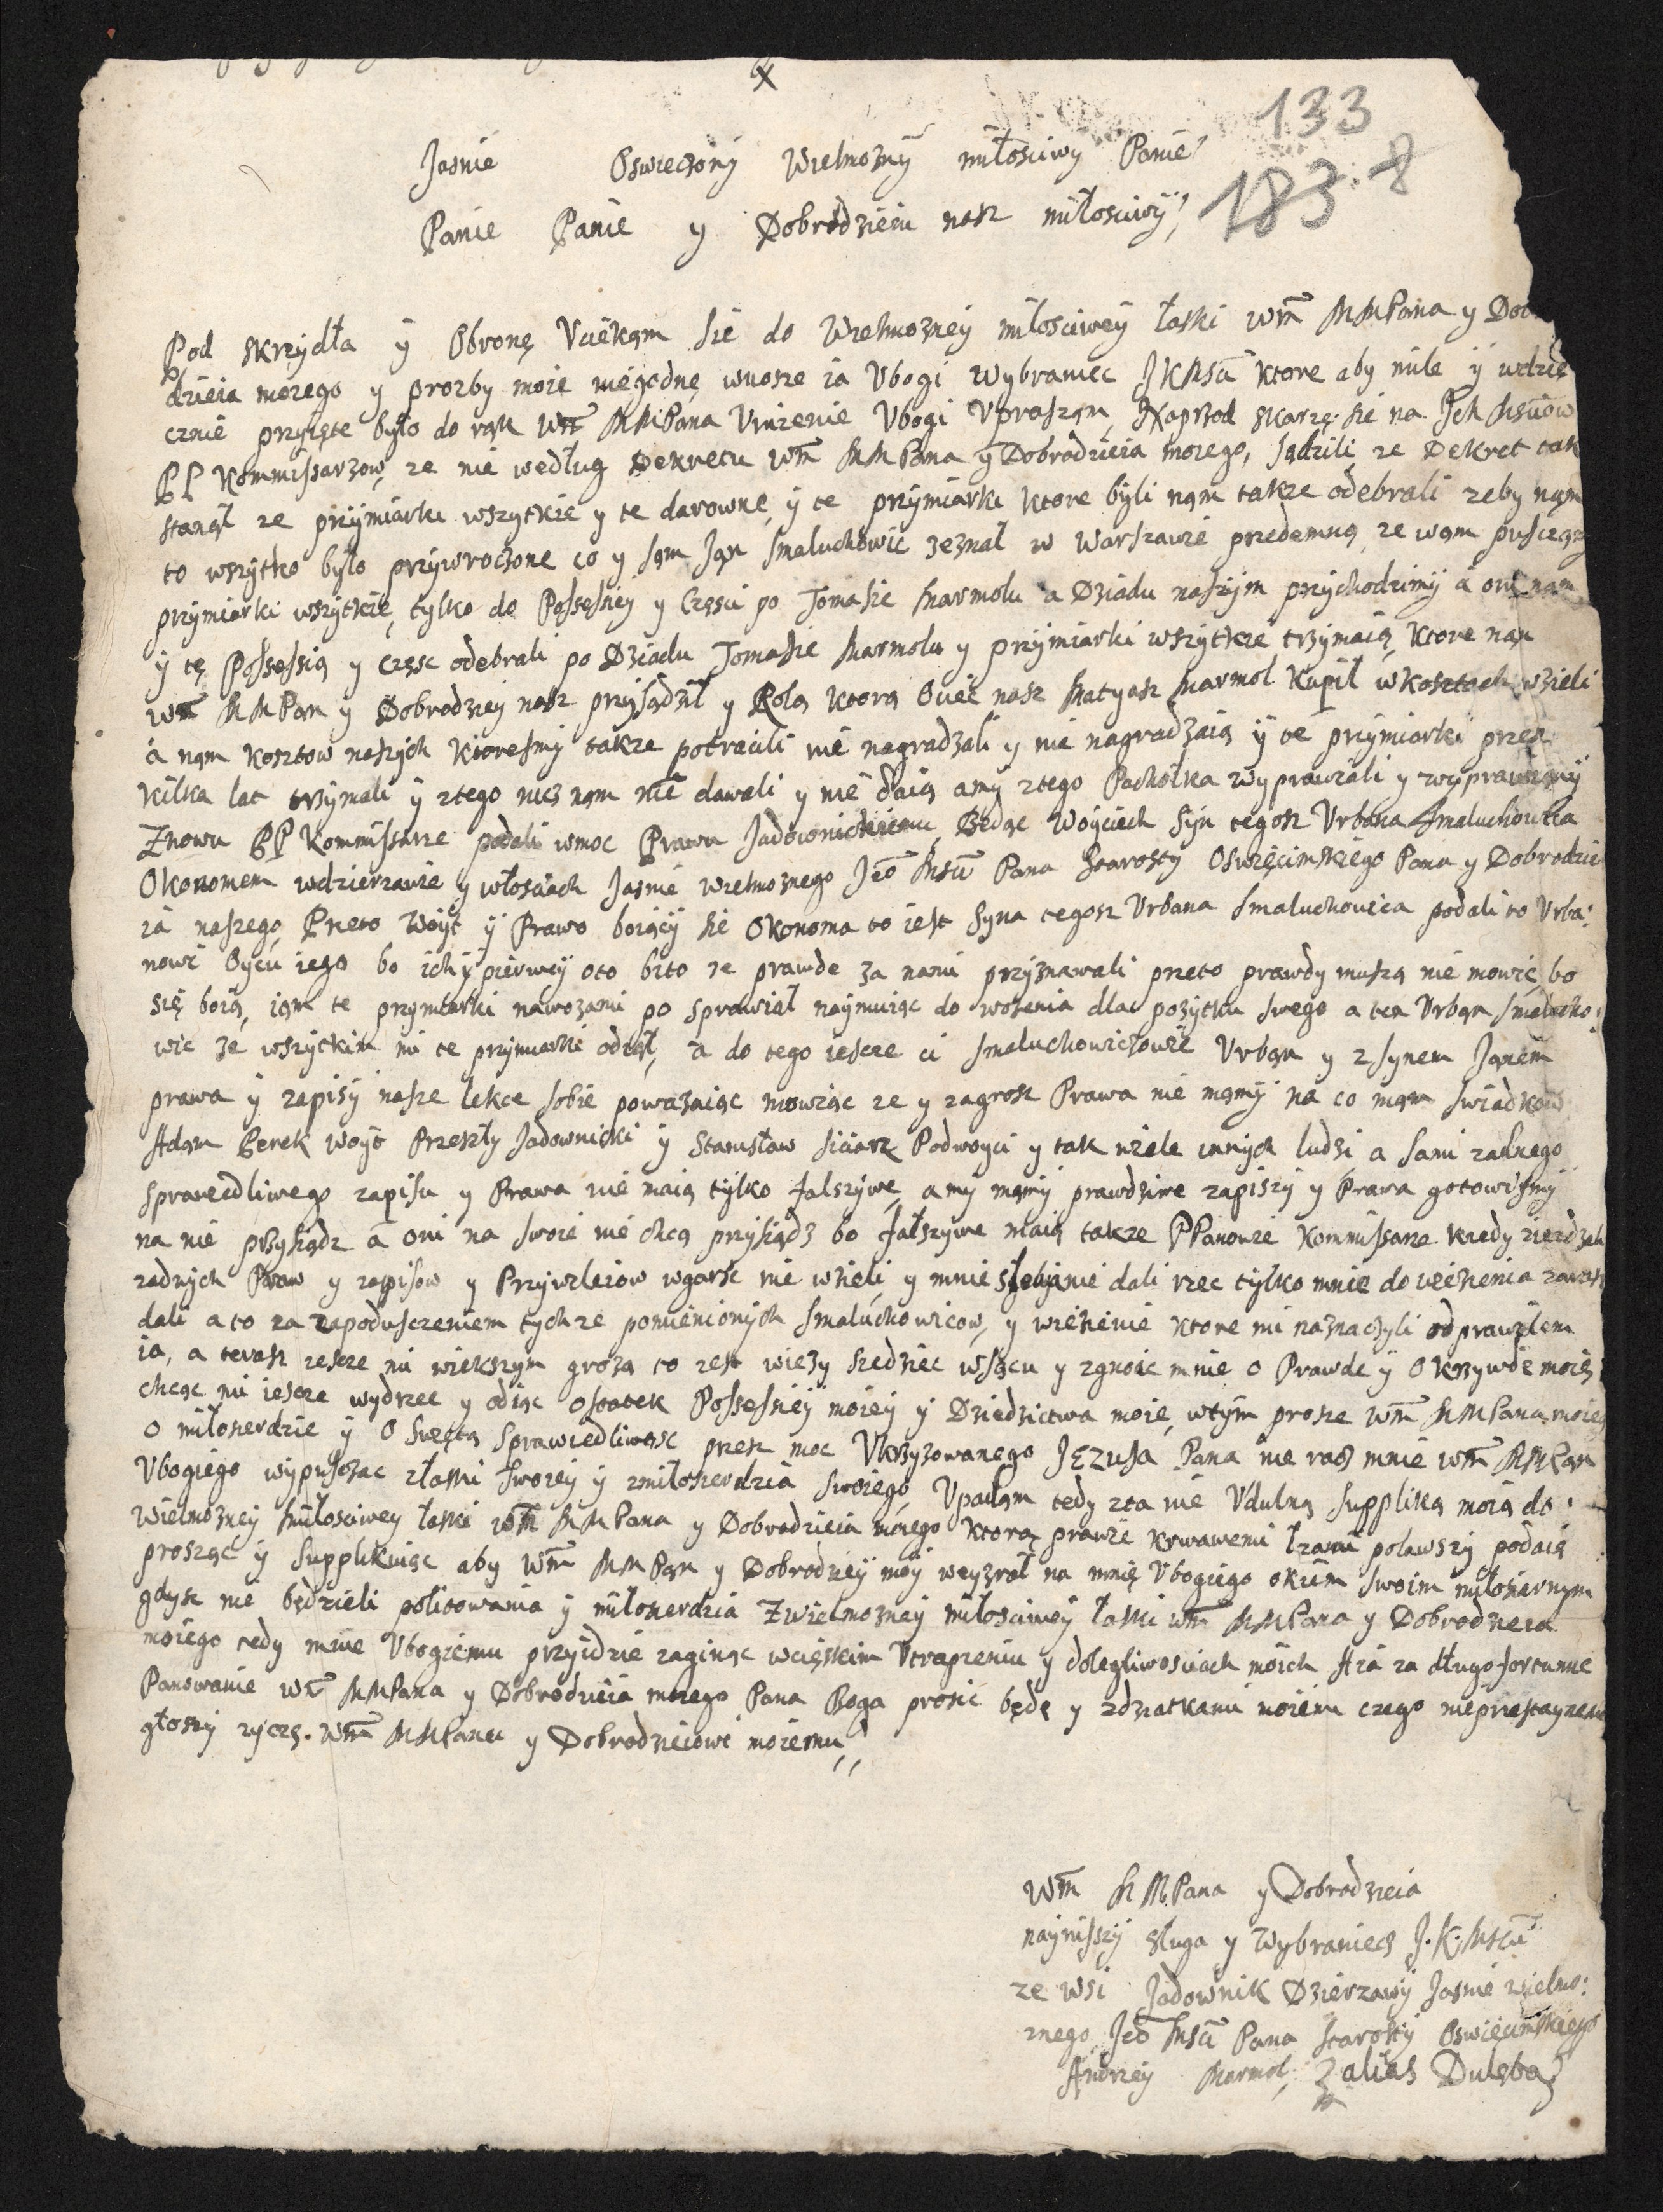 133
183. 8
Jasnie Oswieczony Wielmozny miłosciwy Panie
Panie Panie y Dobrodzieiu nasz miłosciwy
Pod skrzydła y Obronę Vciekąm sie do Wielmozney miłosciwey łaski Wm MMPana y Dob
dzieia moiego y prozby moie niegodnę wnosze ia Vbogi Wybraniec JKMsci ktore aby mile y wdzię
cznie przyięte było do rąk Wm MMPana Vnizenie Vbogi Vprasząm, Naprzod skarzę sie na Ich Msciow
PP Kommissarzow, ze nie według Dekretu Wm MMPana y Dobrodzieia moiego, sądzili ze Dekret tak
stanął ze przymiarki wszytkie y te darowne y te przymiarki ktore byli nąm takze odebrali zeby nąm
to wszytko było przywroczone co y sąm Jąn Smaluchowic zeznał w Warszawie przedemną, ze wąm pusccąm
przymiarki wszytkie, tylko do Possessiey y Częsci po Tomasie Marmolu a Dziadu naszym przychodzimy a oni nam
y tę Possessią y częsc odebrali po Dziadu Tomasie Marmolu y przymiarki wszytkie trzymaią, ktore nąm
Wm MMPąn y Dobrodziey nasz przysądził y Rolą ktorą Ociec nasz Matyasz Marmol Kupił w kosztach wzieli
a nąm kosztow naszych ktoresmy takze potracili nie nagradzali y nie nagradzaią y te przymiarki przez
kilka lat trzymali y ztego nicz nąm nie dawali y nie daią amy ztego Pachołka wyprawiali y wyprawiamy
Znowu PP Kommissarze podali wmoc Prawu Jadownickiemu, Będąc Woyciech Syn tegosz Vrbana Smaluchowica
Okonomem wdzierzawie y włosciach Jasnie wielmoznego Jeo Msci Pana Starosty Oswięcimskiego Pana y Dobrodzie
ia naszego, Preto Woyt y Prawo boiący sie Okonoma to iest Syna tegosz Vrbana Smaluchowica podali to Vrba:
nowi Oycu iego bo ich y pierwey oto bito ze prawde za nami przyznawali preto prawdy muszą nie mowić, bo
się boią, iąm te przymiarki nawozami po sprawiał naymuiąc do wozenia dla pozytku swego a ten Vrbąn Smalucho:
wic ze wszytkim mi te przymiarki odiął, a do tego iescze ci Smaluchowiczowie Vrbąn y z synem Janem
prawa y zapisy nasze lekce sobie powazaiąc mowiąc ze y zagrosz Prawa nie mąmy na co mąm swiadkow
Adąm Berek Woyt Przeszły Jadownicki y Stanisław Siciarz Podwoyci y tak wiele innych ludzi a sami zadnego
sprawiedliwego zapisu y Prawa nie maią tylko falszywe, amy mąmy prawdziwe zapiszy y Prawa gotowismy
na nie przysiądz a oni na swoie nie chcą przysiądz bo fałszywe maią takze PPanowie Kommissarze kiedy ziezdzali
zadnych Praw y zapisow y Przywileiow wgarsc nie wzieli, y mnie y nie dali rzec tylko mnie do wiezienia zawsze
dali a to za zapodusczeniem tychze pomienionych Smaluchowicow, y wiezienie ktore mi naznaczyli odprawiłem
ia, a terasz iescze mi wiekszym grozą to iest wiezy siedziec wsącu y zgnoic mnie o Prawde y o krzywde moię
chcąc mi iescze wydrzec y odiąc ostatek Possessiey moiey y Dziedzictwa moie, wtym prosze Wm MMPana moieg
o miłosierdzie y o Swiętą Sprawiedliwosc przez moc Vkrzyzowanego JEzusa Pana nie racz mnie Wm MMPąn
Vbogiego wypusczac złaski swoiey y zmiłosierdzia swoiego, Vpadąm tedy zta nie Vdulną supplikq moią do
Wielmozney Miłosciwey łaski Wm MMPana y Dobrodzieia moiego ktorą prawie krwawemi łzami polawszy podaię
prosząc y supplikuiąc aby Wm MMPąn y Dobrodziey moy weyzrał na mnię Vbogiego okiem swoim miłosiernym
gdysz nie będzieli politowania y miłosierdzia Zwielmozney miłosciwey łaski Wm MMPana y Dobrodzieia
moiego tedy mnie Vbogiemu przyidzie zaginąc wcięskim Vtrapieniu y dolegliwosciach moich A ia za długo fortunne
Panowanie Wm MMPana y Dobrodzieia moiego Pana Boga prosić będę y zdziatkami moiemi czego nieprzestaynemi
głosy zyczę. Wm MMPanu y Dobrodzieiowi moiemu
Wm MMPana y Dobrodzieia
naynizszy sługa y Wybraniecz J.K.Msci
ze wsi Jadownik Dzierzawy Jasnie wielmo:
znego Jeo Msci Pana Starosty Oswięcimskiego
Andrzey Marmol alias Dulęba